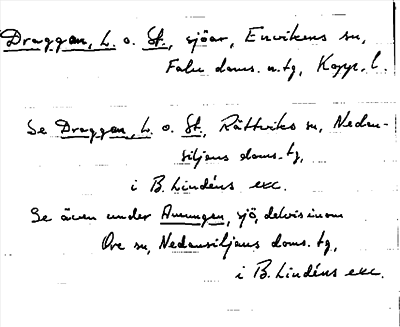 Draggen, L. o. St., sjöar, Envikens sn,
Falu doms. n. tg, Kopp. l.
Se Draggen, L. o. St., Rättviks sn, Nedan-
siljans doms. tg,
i B. Lindéns exc.
Se även under Amungen, sjö, delvis inom
Ore sn, Nedansiljans doms. tg,
i B. Lindéns exc.